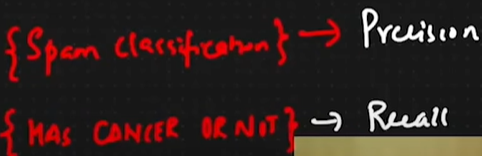 {Spam classification} → Precision
{HAS CANCER OR NOT} → Recall